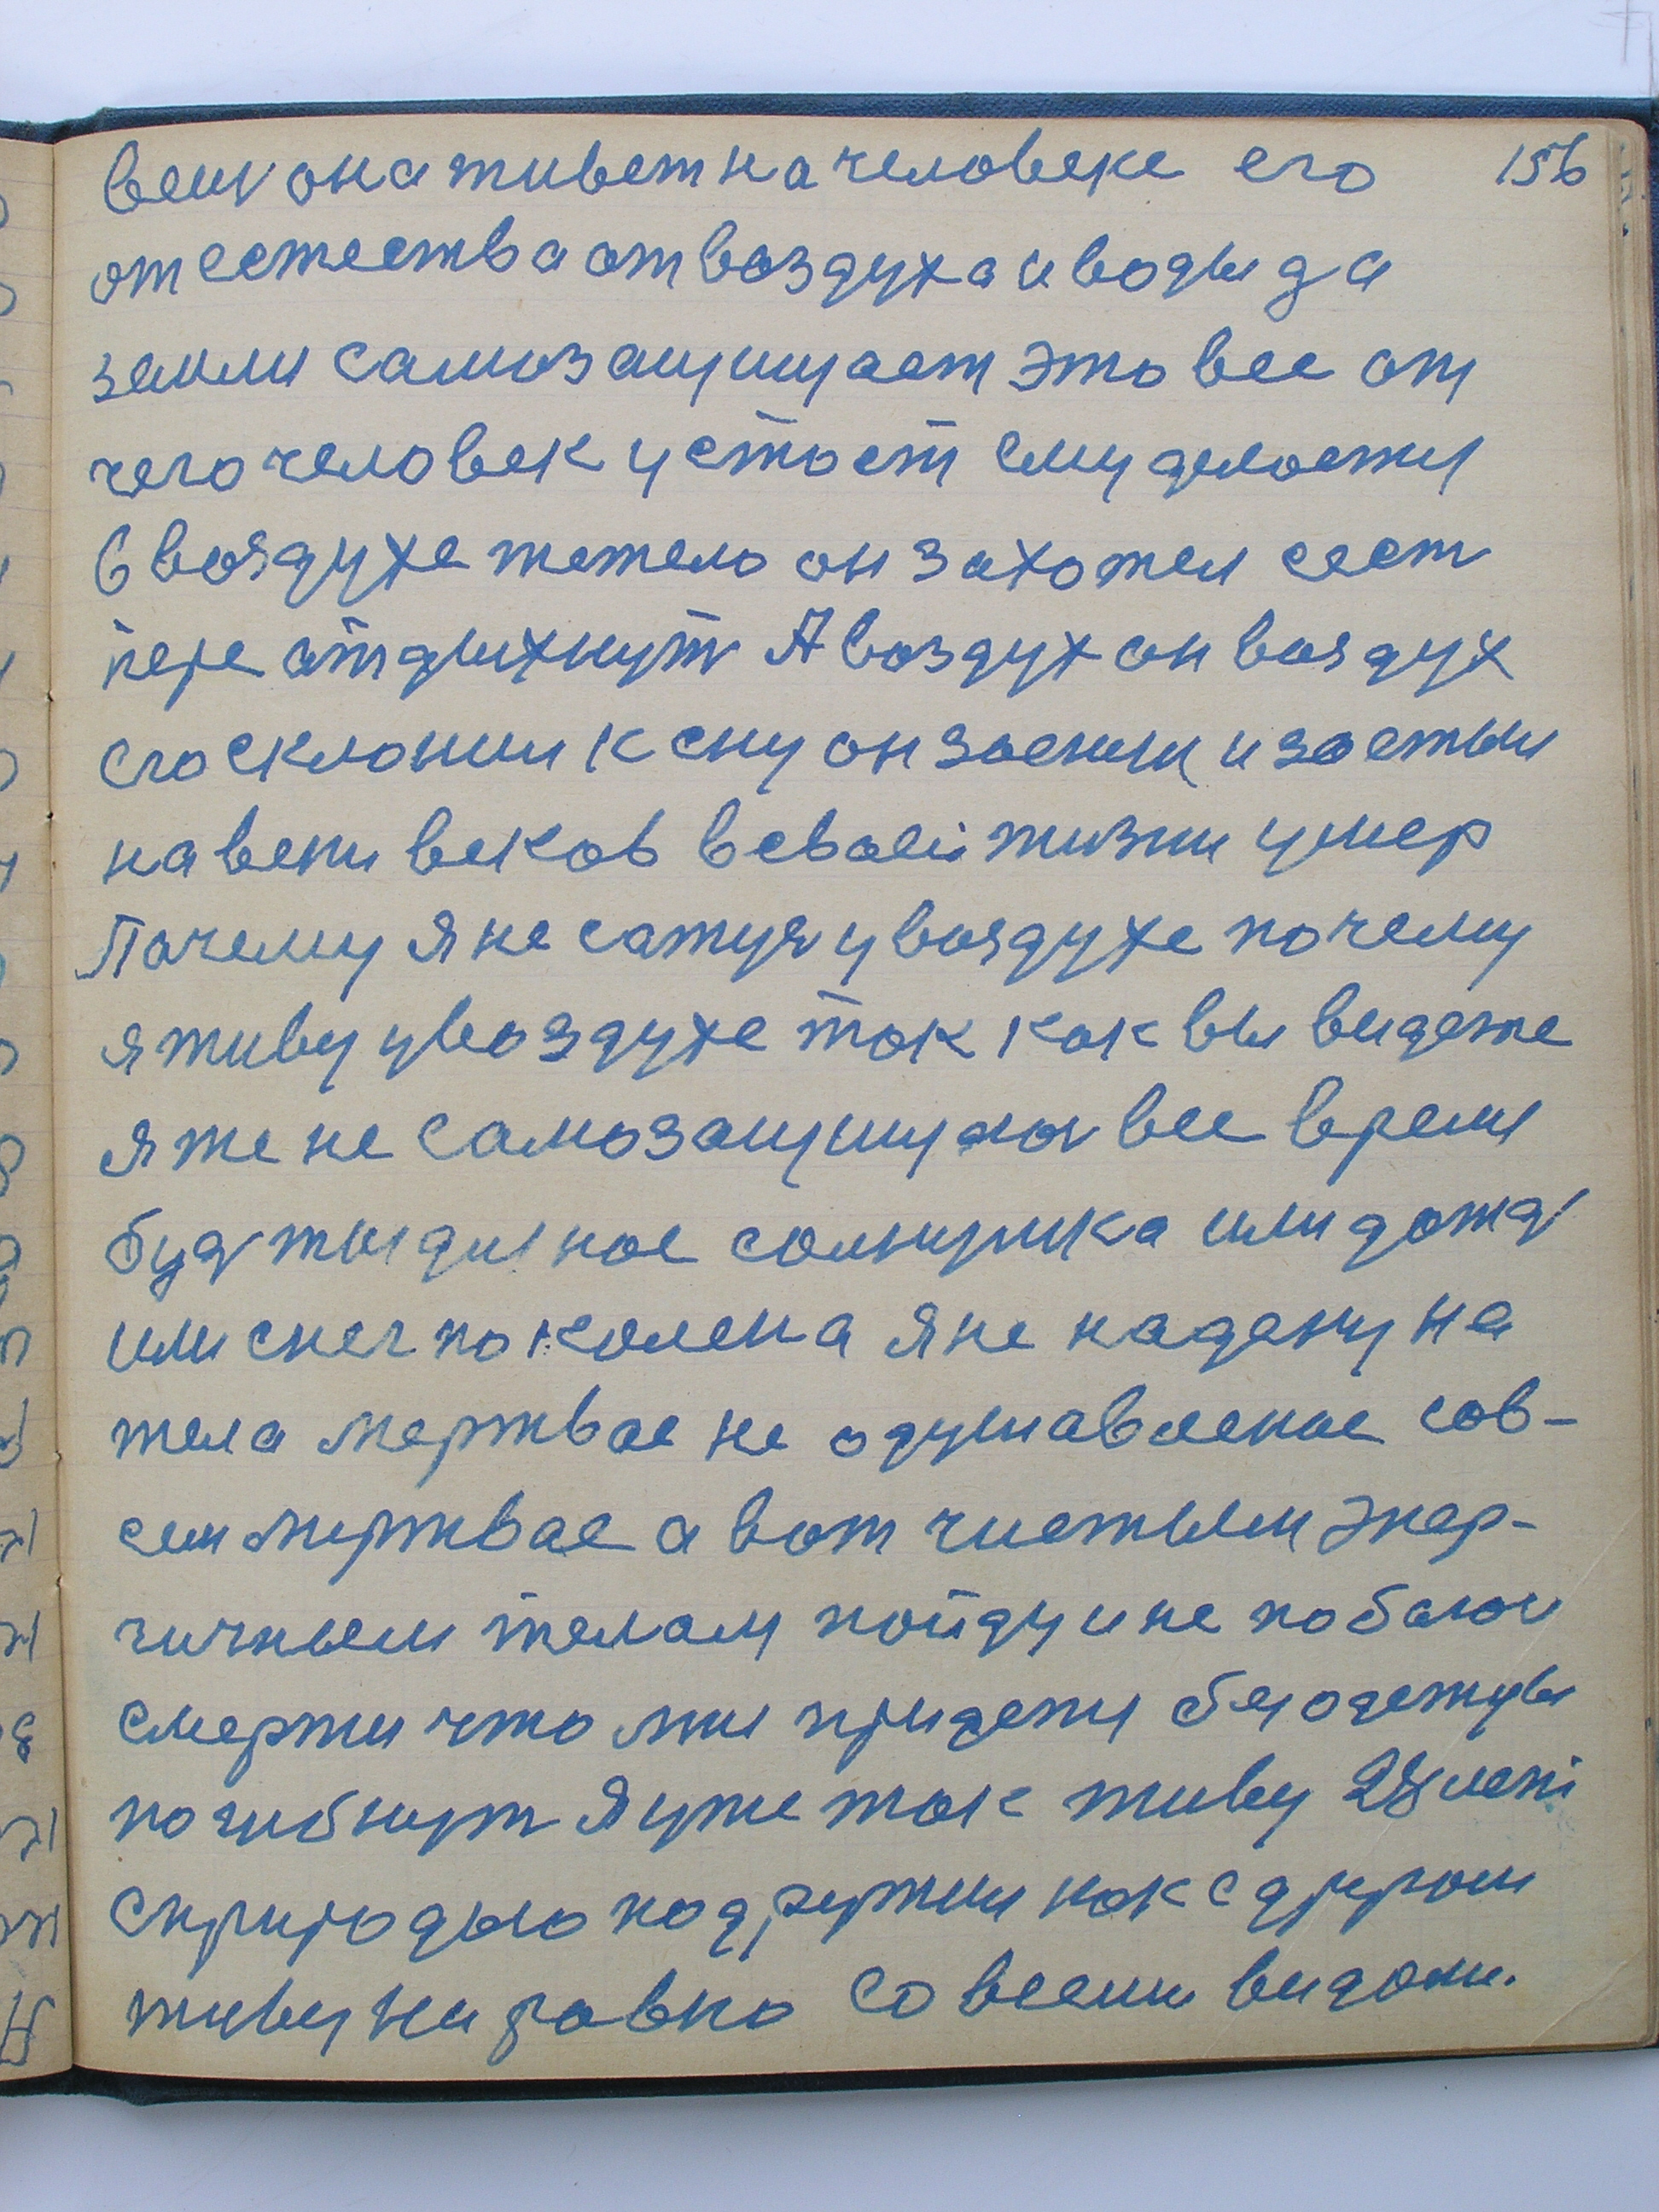 вещ она живет на человеке его 156
от естества от воздуха и воды да
земли самозащищает это все от
чего человек устоет ему делоетця
в воздухе тежело он захотел сест
пере отдыхнуть А воздух он воздух
его склонил к сну он заснул и застыл
на веки веков в своей жизни умер
Почему я не сажуся у воздухе почему
я живу у воздухе так как вы видете
я же не самозащищаюся все время
буд ты дильное солнушка или дожд
или снег по колена я не надену на
тела мертвае не одушавленое сов-
сем мертвае а вот чистым энер-
гичным телам пойду и не побаюс
смерти что мне придетця без одежды
погибнут Я уже так живу 28 лет
с природою подружил как с другом
живу на равно со всеми видами.